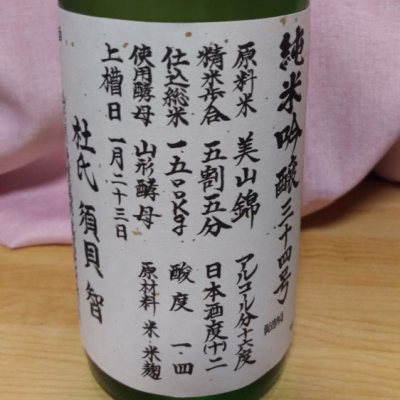 純米吟醸三十四号
原料米 美山錦 アルコール分十六度
精米歩合 五割五分 日本酒度(+)二
仕込総米 一五〇〇kg 酸度 一・四
使用酵母 山形酵母 原材料 米・米麹
上槽日 一月二十三日
杜氏 須貝智